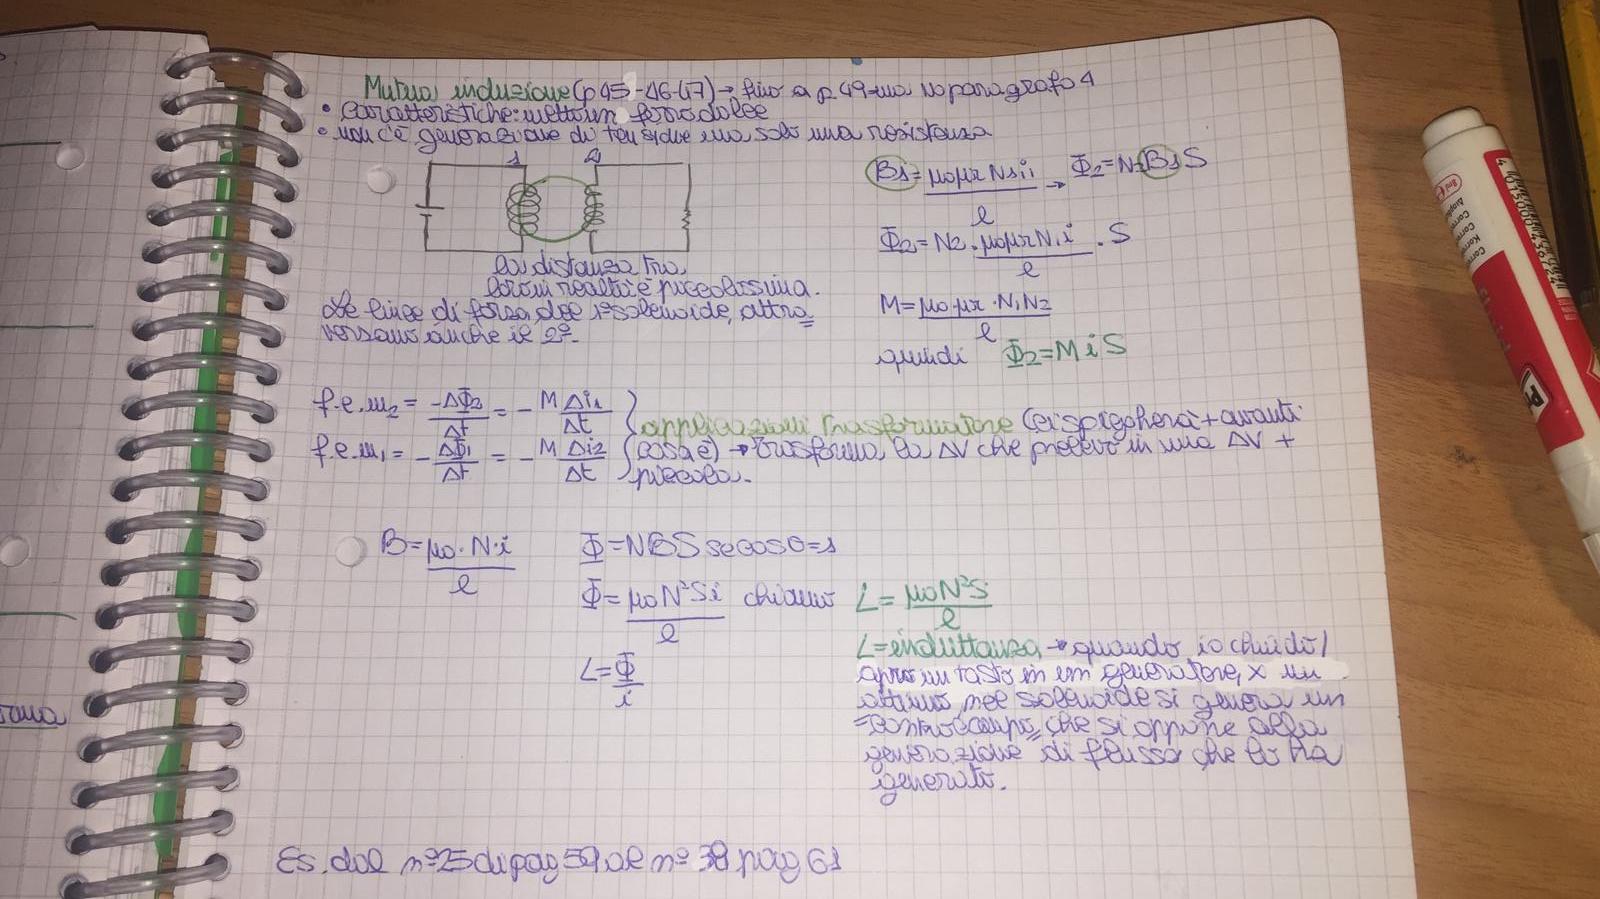 Mutua induzione (p 45-46-47) → fino a p 49 ma no paragrafo 4
• Caratteristiche: metto un ferro dolce
• non c'è generazione di tensione ma solo una resistenza
1 2
la distanza tra
loro in realtà è piccolissima.
Le linee di forza del 1° solenoide, attra
versano anche il 2°.
B1 = μ0μr N1i1 / l → Φ2 = N2B1S
Φ2 = N2 · μ0μr N1i / l · S
M = μ0μr · N1N2 / l
quindi Φ2 = M i S
f.e.m2 = -ΔΦ2/Δt = - M Δi1/Δt
f.e.m1 = - ΔΦ1/Δt = - M Δi2/Δt
applicazioni trasformatore (ci spiegherà + avanti
cosa è) → trasforma la ΔV che prelevo in una ΔV +
piccola.
B = μ0 · N · i / l
Φ = NBS se cosθ = 1
Φ = μ0N²Si / l chiamo L = μ0N²S / l
L = Φ / i
L = induttanza → quando io chiudo/
apro un tasto in un generatore, x un
attimo nel solenoide si genera un
controcampo, che si oppone alla
generazione di flusso che lo ha
generato.
Es. dal n° 25 di pag 59 al n° 38 pag 61
Pritt